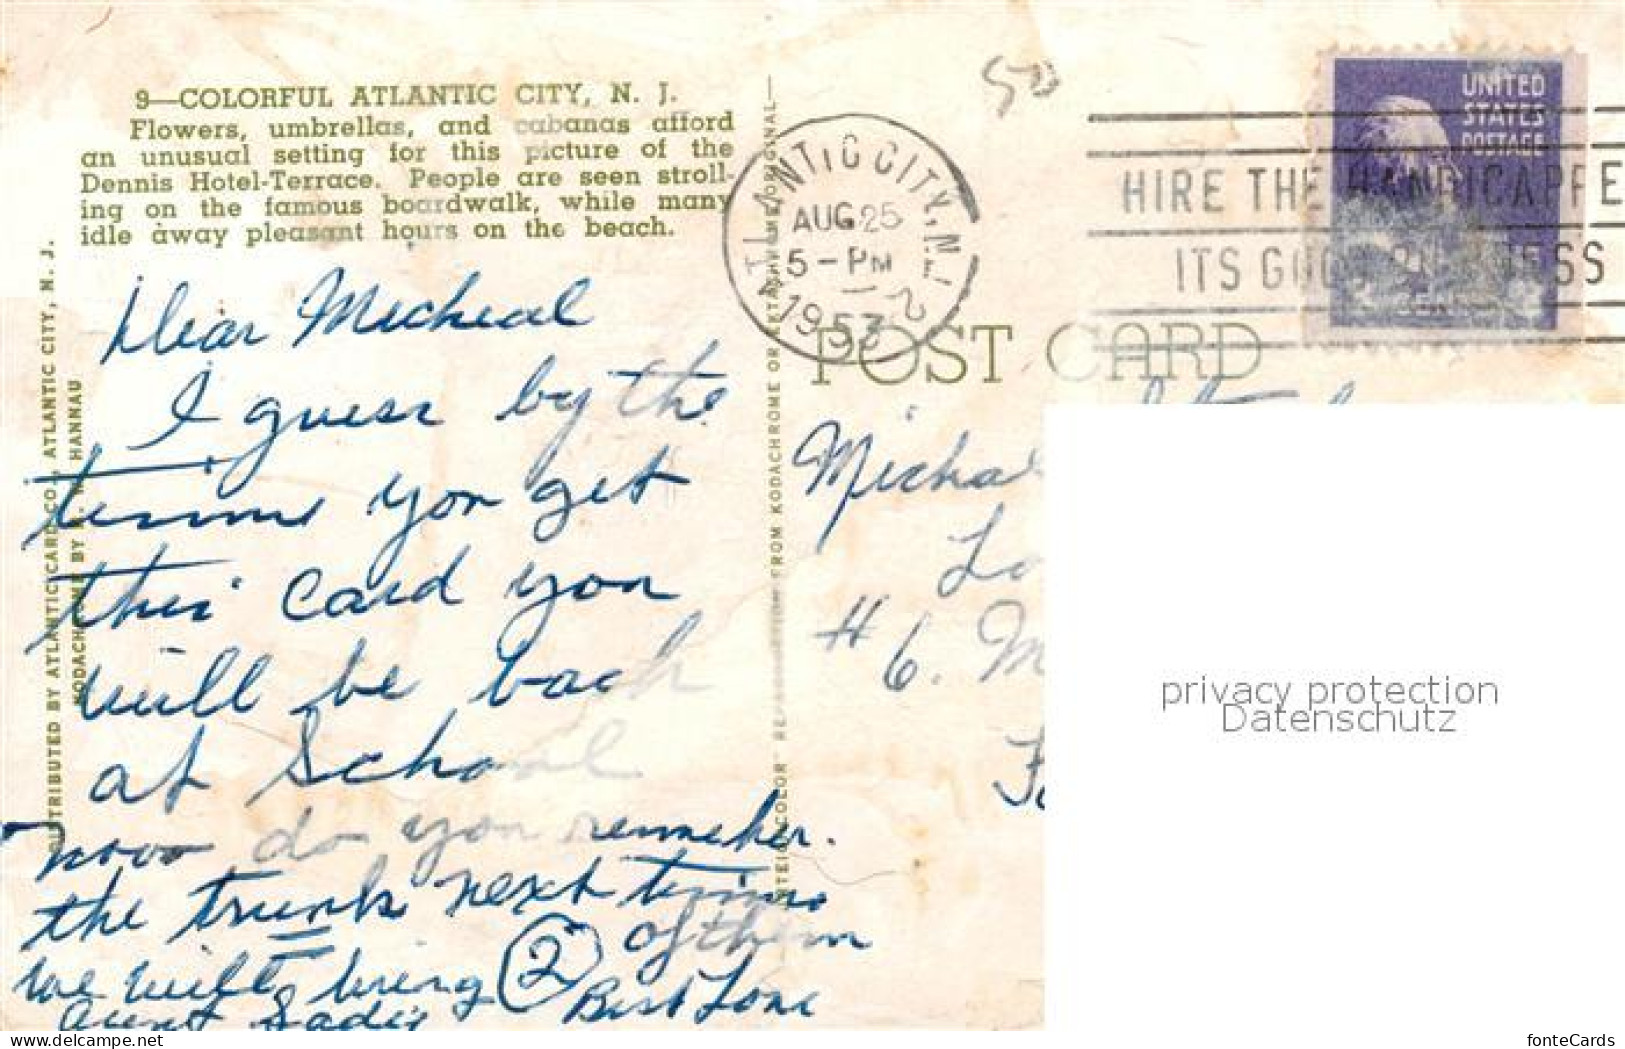 9—COLORFUL ATLANTIC CITY, N. J.
Flowers, umbrellas, and cabanas afford
an unusual setting for this picture of the
Dennis Hotel-Terrace. People are seen stroll-
ing on the famous boardwalk, while many
idle away pleasant hours on the beach.
DISTRIBUTED BY ATLANTIC CARD CO., ATLANTIC CITY, N. J.
KODACHROME BY HANNAU
Dear Micheal
I guess by the
timme you get
this card you
will be back
at School
now do you remmeber.
the trunk next timme
we will bring 2 of them
Best Love
Aunt Sadie
FROM KODACHROME OR ORIGINAL
ATLANTIC CITY, N.J.
AUG 25
5-PM
1953
2
HIRE THE HANDICAPPE
ITS GOOD BUSINESS
UNITED
STATES
POSTAGE
POST CARD
50
Michal
Lo
# 6. M
privacy protection
Datenschutz
www.delcampe.net
fonteCards